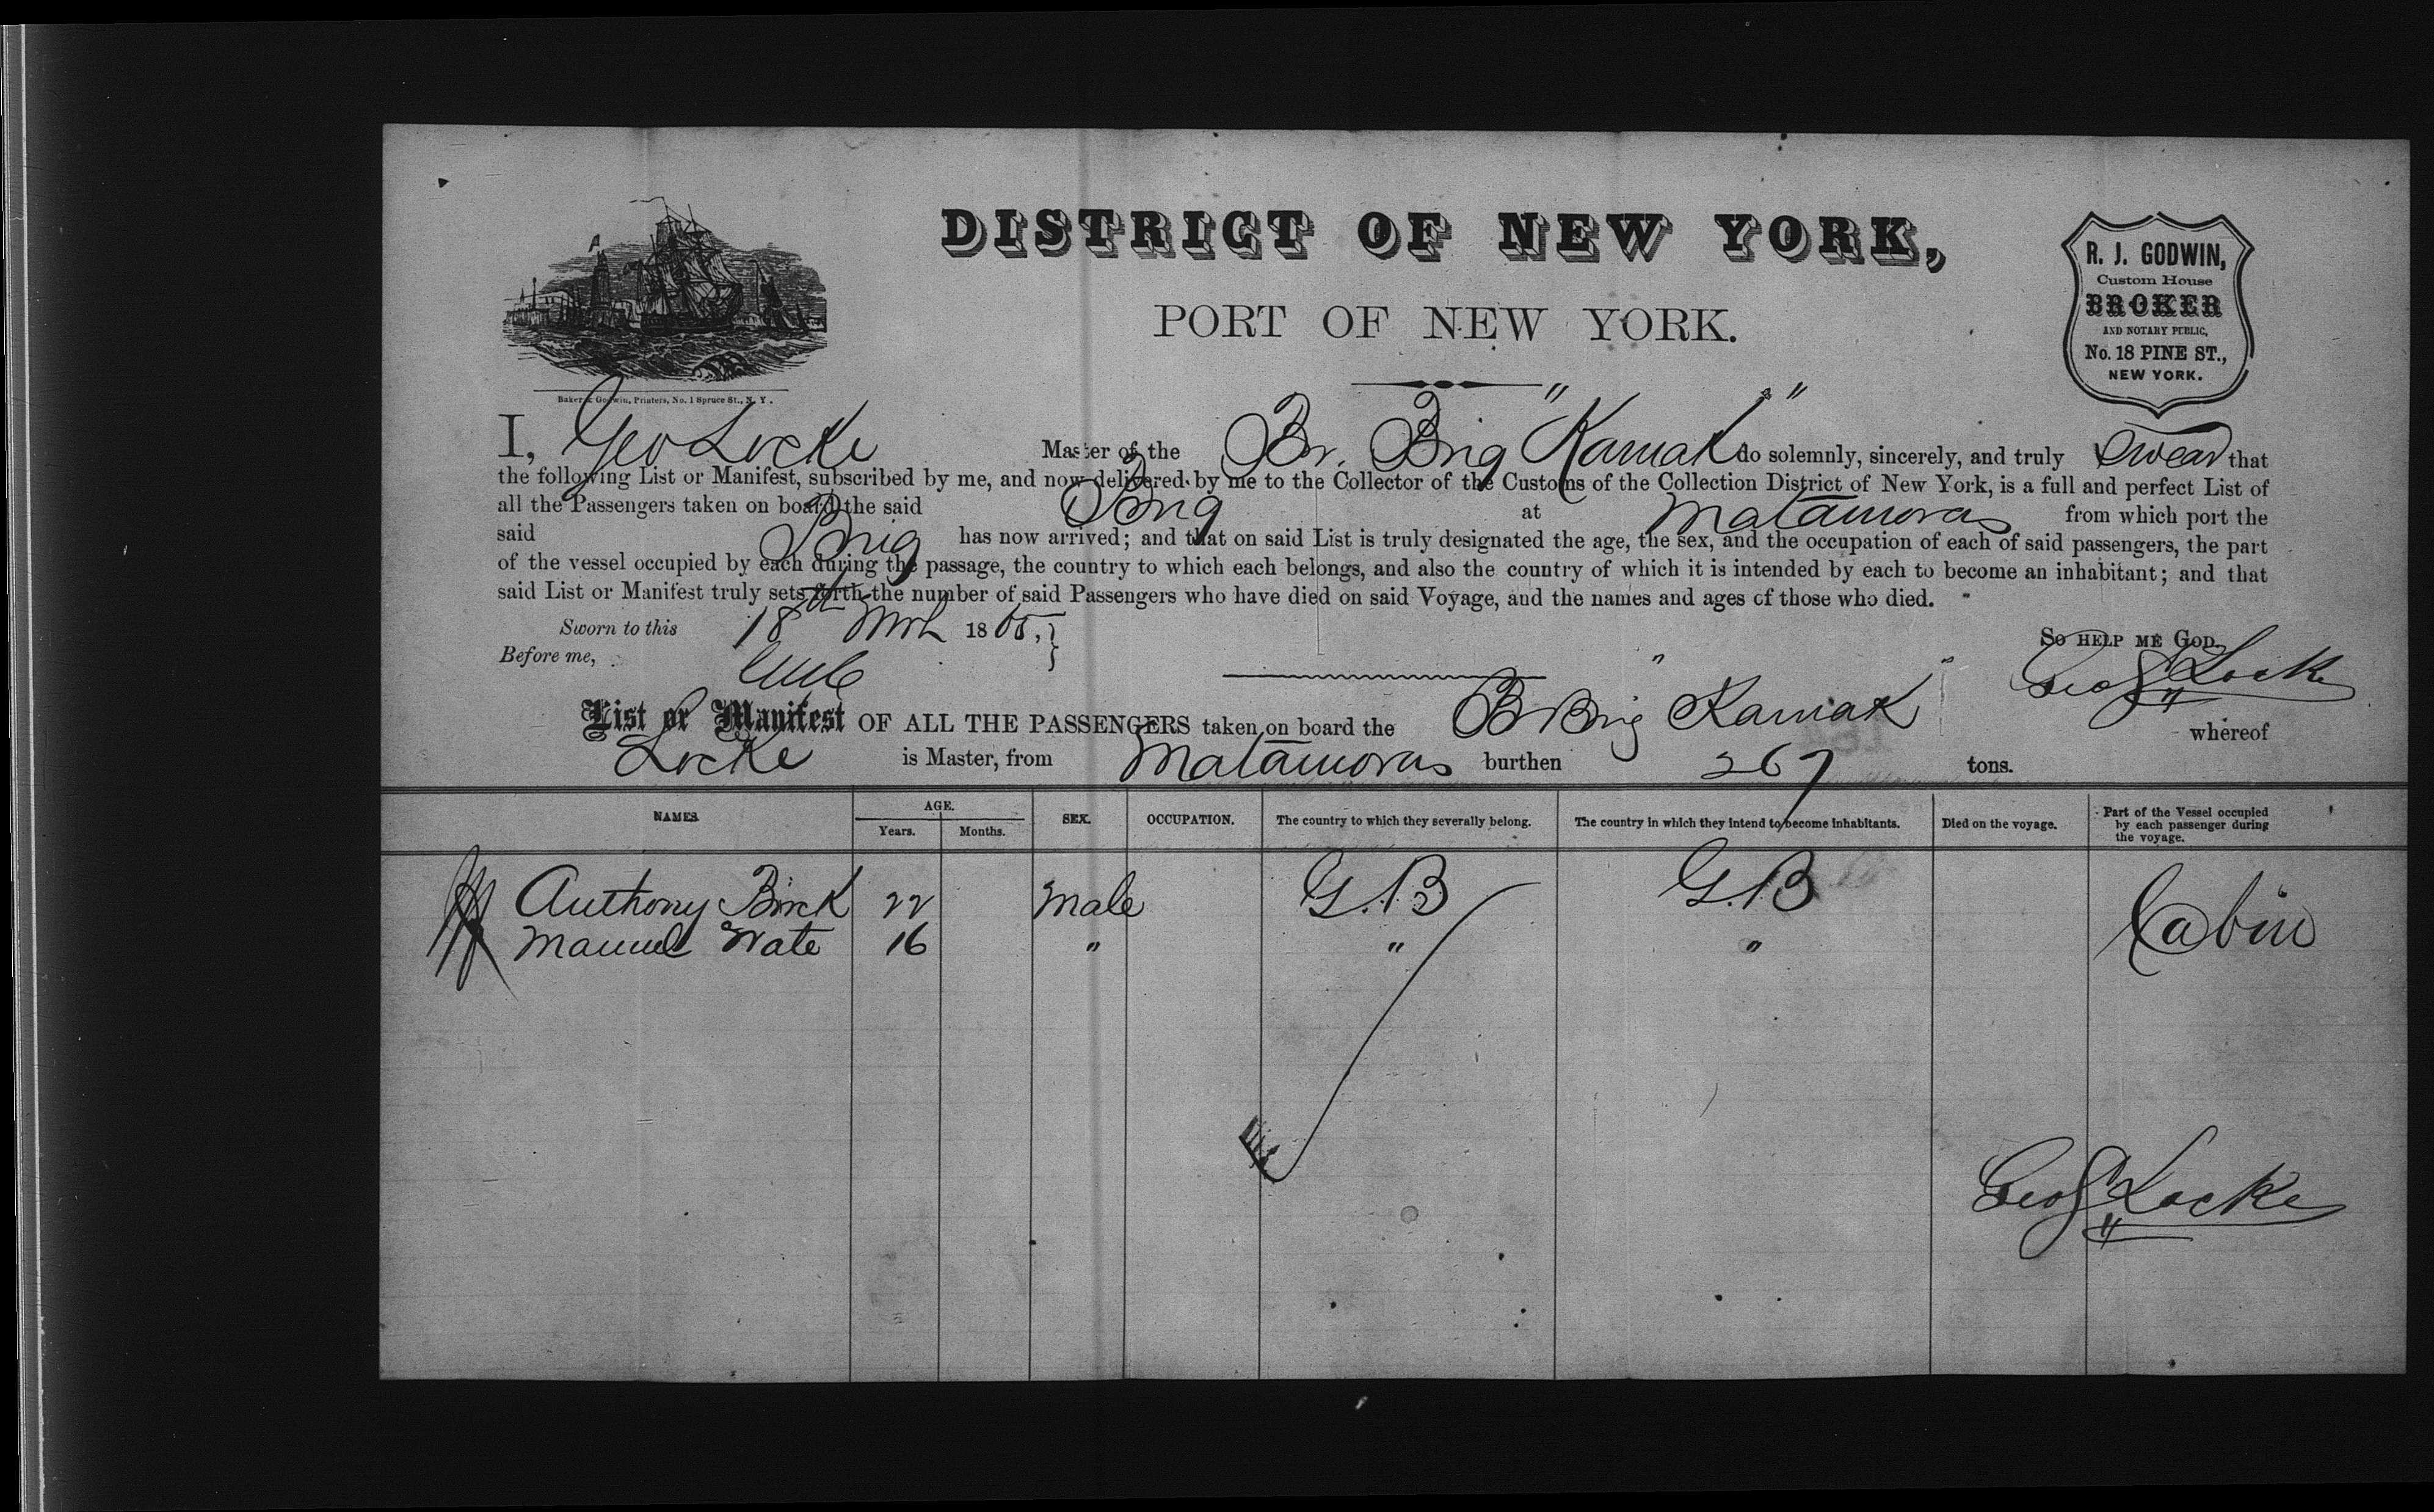 DISTRICT OF NEW YORK,
PORT OF NEW YORK.
R. J. GODWIN,
Custom House
BROKER
AND NOTARY PUBLIC,
No. 18 PINE ST.,
NEW YORK.
Baker & Godwin, Printers, No. 1 Spruce St., N. Y.
I, Geo Locke Master of the Br. Brig "Karnak" do solemnly, sincerely, and truly swear that
the following List or Manifest, subscribed by me, and now delivered by me to the Collector of the Customs of the Collection District of New York, is a full and perfect List of
all the Passengers taken on board the said Brig at Matamoras from which port the
said Brig has now arrived; and that on said List is truly designated the age, the sex, and the occupation of each of said passengers, the part
of the vessel occupied by each during the passage, the country to which each belongs, and also the country of which it is intended by each to become an inhabitant; and that
said List or Manifest truly sets forth the number of said Passengers who have died on said Voyage, and the names and ages of those who died.
Sworn to this 18th Mch 1865,
So help me God.
Before me,
Geo S Locke
List or Manifest OF ALL THE PASSENGERS taken on board the B Brig Karnak whereof
Locke is Master, from Matamoras burthen 267 tons.
NAMES AGE. Years. Months. SEX. OCCUPATION. The country to which they severally belong. The country in which they intend to become inhabitants. Died on the voyage. Part of the Vessel occupied by each passenger during the voyage.
Anthony Birck 22 Male G.B G.B Cabin
Manuel Wate 16 " " "
Geo S Locke